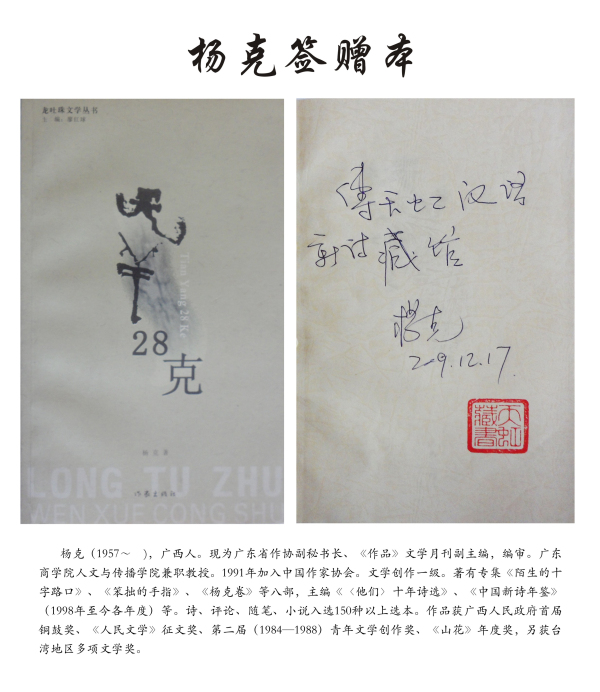 杨克签赠本
龙吐珠文学丛书
Tian Yang 28 Ke
28
克
杨克 著
LONG TU ZHU
WEN XUE CONG SHU
作家出版社
傅天虹汉语
新诗藏馆
杨克
2009.12.17.
天虹
藏書
杨克（1957～　），广西人。现为广东省作协副秘书长、《作品》文学月刊副主编，编审。广东
商学院人文与传播学院兼职教授。1991年加入中国作家协会。文学创作一级。著有专集《陌生的十
字路口》、《笨拙的手指》、《杨克卷》等八部，主编《〈他们〉十年诗选》、《中国新诗年鉴》
（1998年至今各年度）等。诗、评论、随笔、小说入选150种以上选本。作品获广西人民政府首届
铜鼓奖、《人民文学》征文奖、第二届（1984—1988）青年文学创作奖、《山花》年度奖，另获台
湾地区多项文学奖。